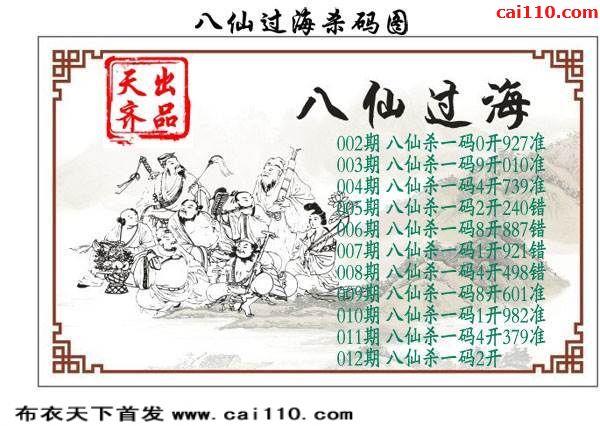 八仙过海杀码图
cai110.com
天出
齐品
八仙过海
002期 八仙杀一码0开927准
003期 八仙杀一码9开010准
004期 八仙杀一码4开739准
005期 八仙杀一码2开240错
006期 八仙杀一码8开887错
007期 八仙杀一码1开921错
008期 八仙杀一码4开498错
009期 八仙杀一码8开601准
010期 八仙杀一码1开982准
011期 八仙杀一码4开379准
012期 八仙杀一码2开
布衣天下首发 www.cai110.com